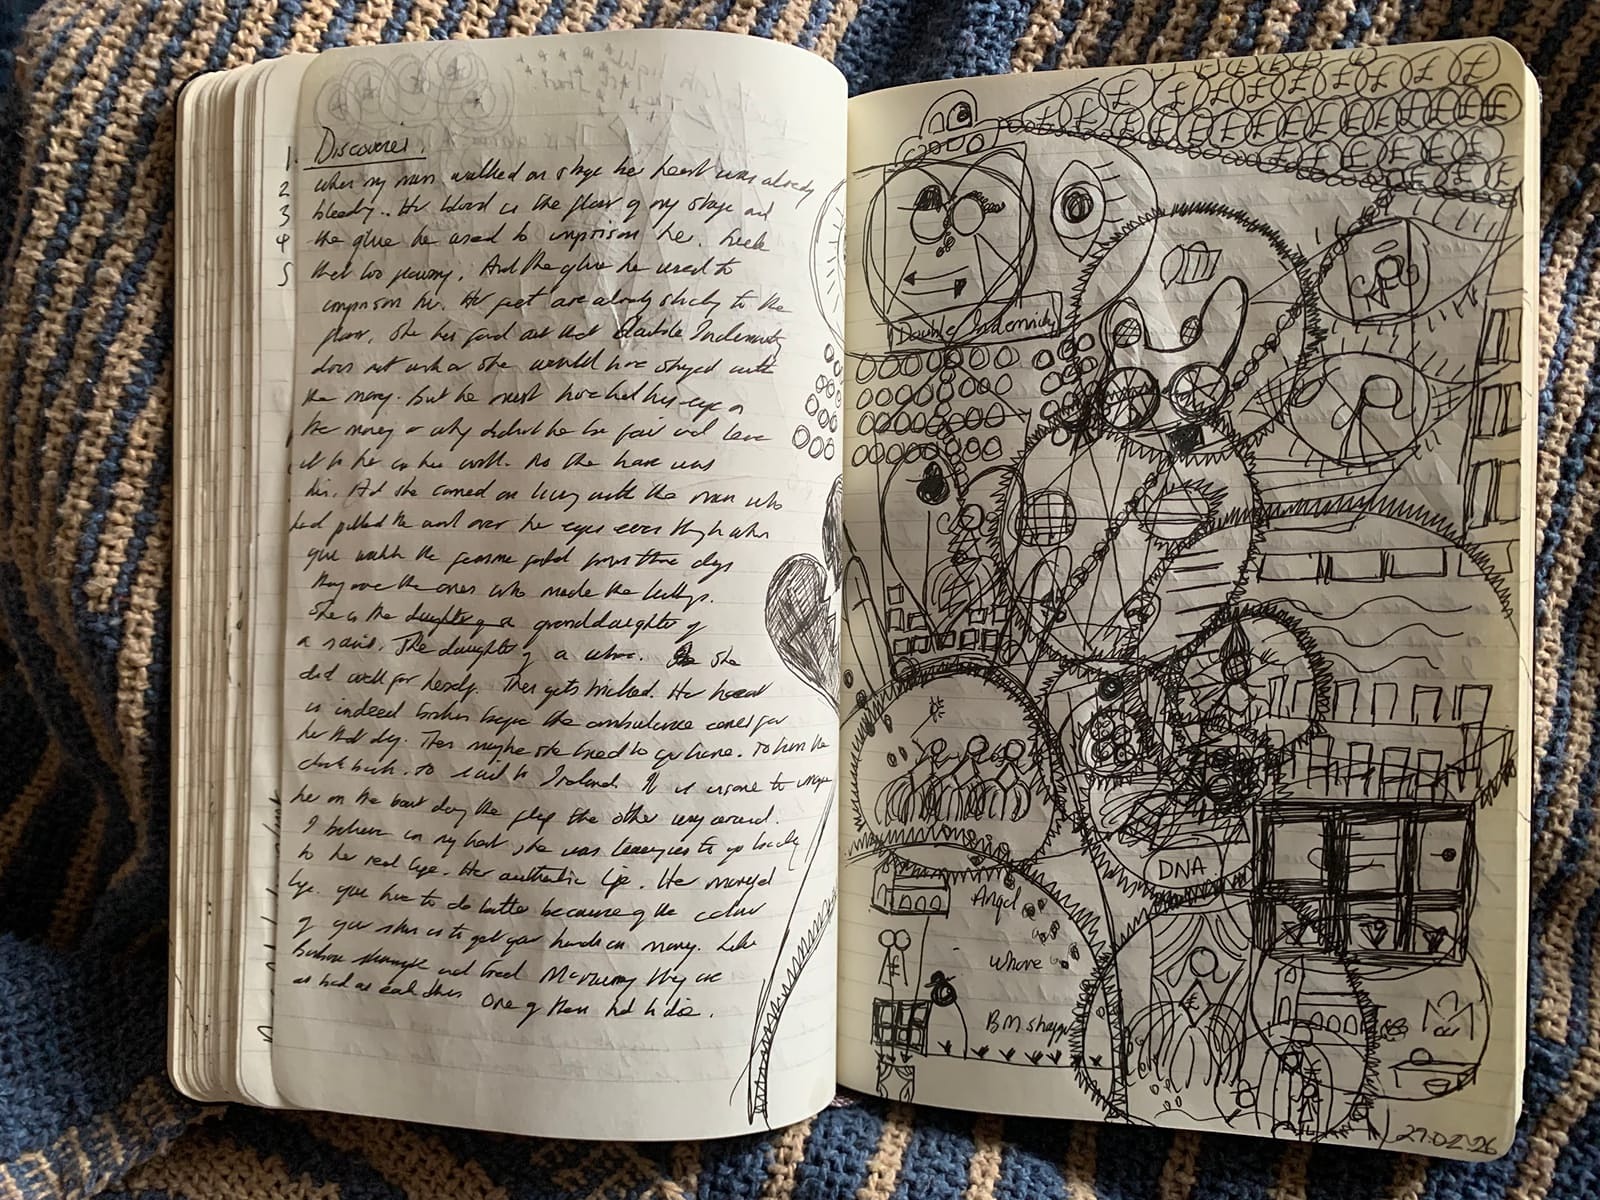 1. Discoveries.
2 when my mum walked on stage her heart was already
3 bleeding.. Her blood is the floor of my stage and
4 the glue he used to imprison her.
5 And the glue he used to
imprison her. Her feet are already sticky to the
floor. She has found out that double Indemnity
does not work or she would have stayed with
the money. but he must have had his eye on
the money or why didn't he be fair and leave
it to her in his will. As the house was
his. And she carried on living with the man who
had pulled the wool over her eyes even though when
give with the femme fatal from those days
they were the ones who made the killings.
She is the daughter of a granddaughter of
a The daughter of a whore. She
did well for herself. Then gets tricked. Her heart
is indeed broken before the ambulance comes for
her that day. Then maybe she tried to go home. To turn the
clock back. to sail to Ireland. It is insane to imagine
her on the boat doing the flip the other way around.
I believe in my heart she was leaving us to go back
to her real life. Her authentic life. Her married
life. you have to do better because of the colour
of your skin is to get your hands on money. Like
Barbara and Fred McMurray they are
as bad as each other One of them had to die.
£ £ £ £ £ £ £ £
Double Indemnity
DNA
Angel
whore
BM shagger
£
27.02.26